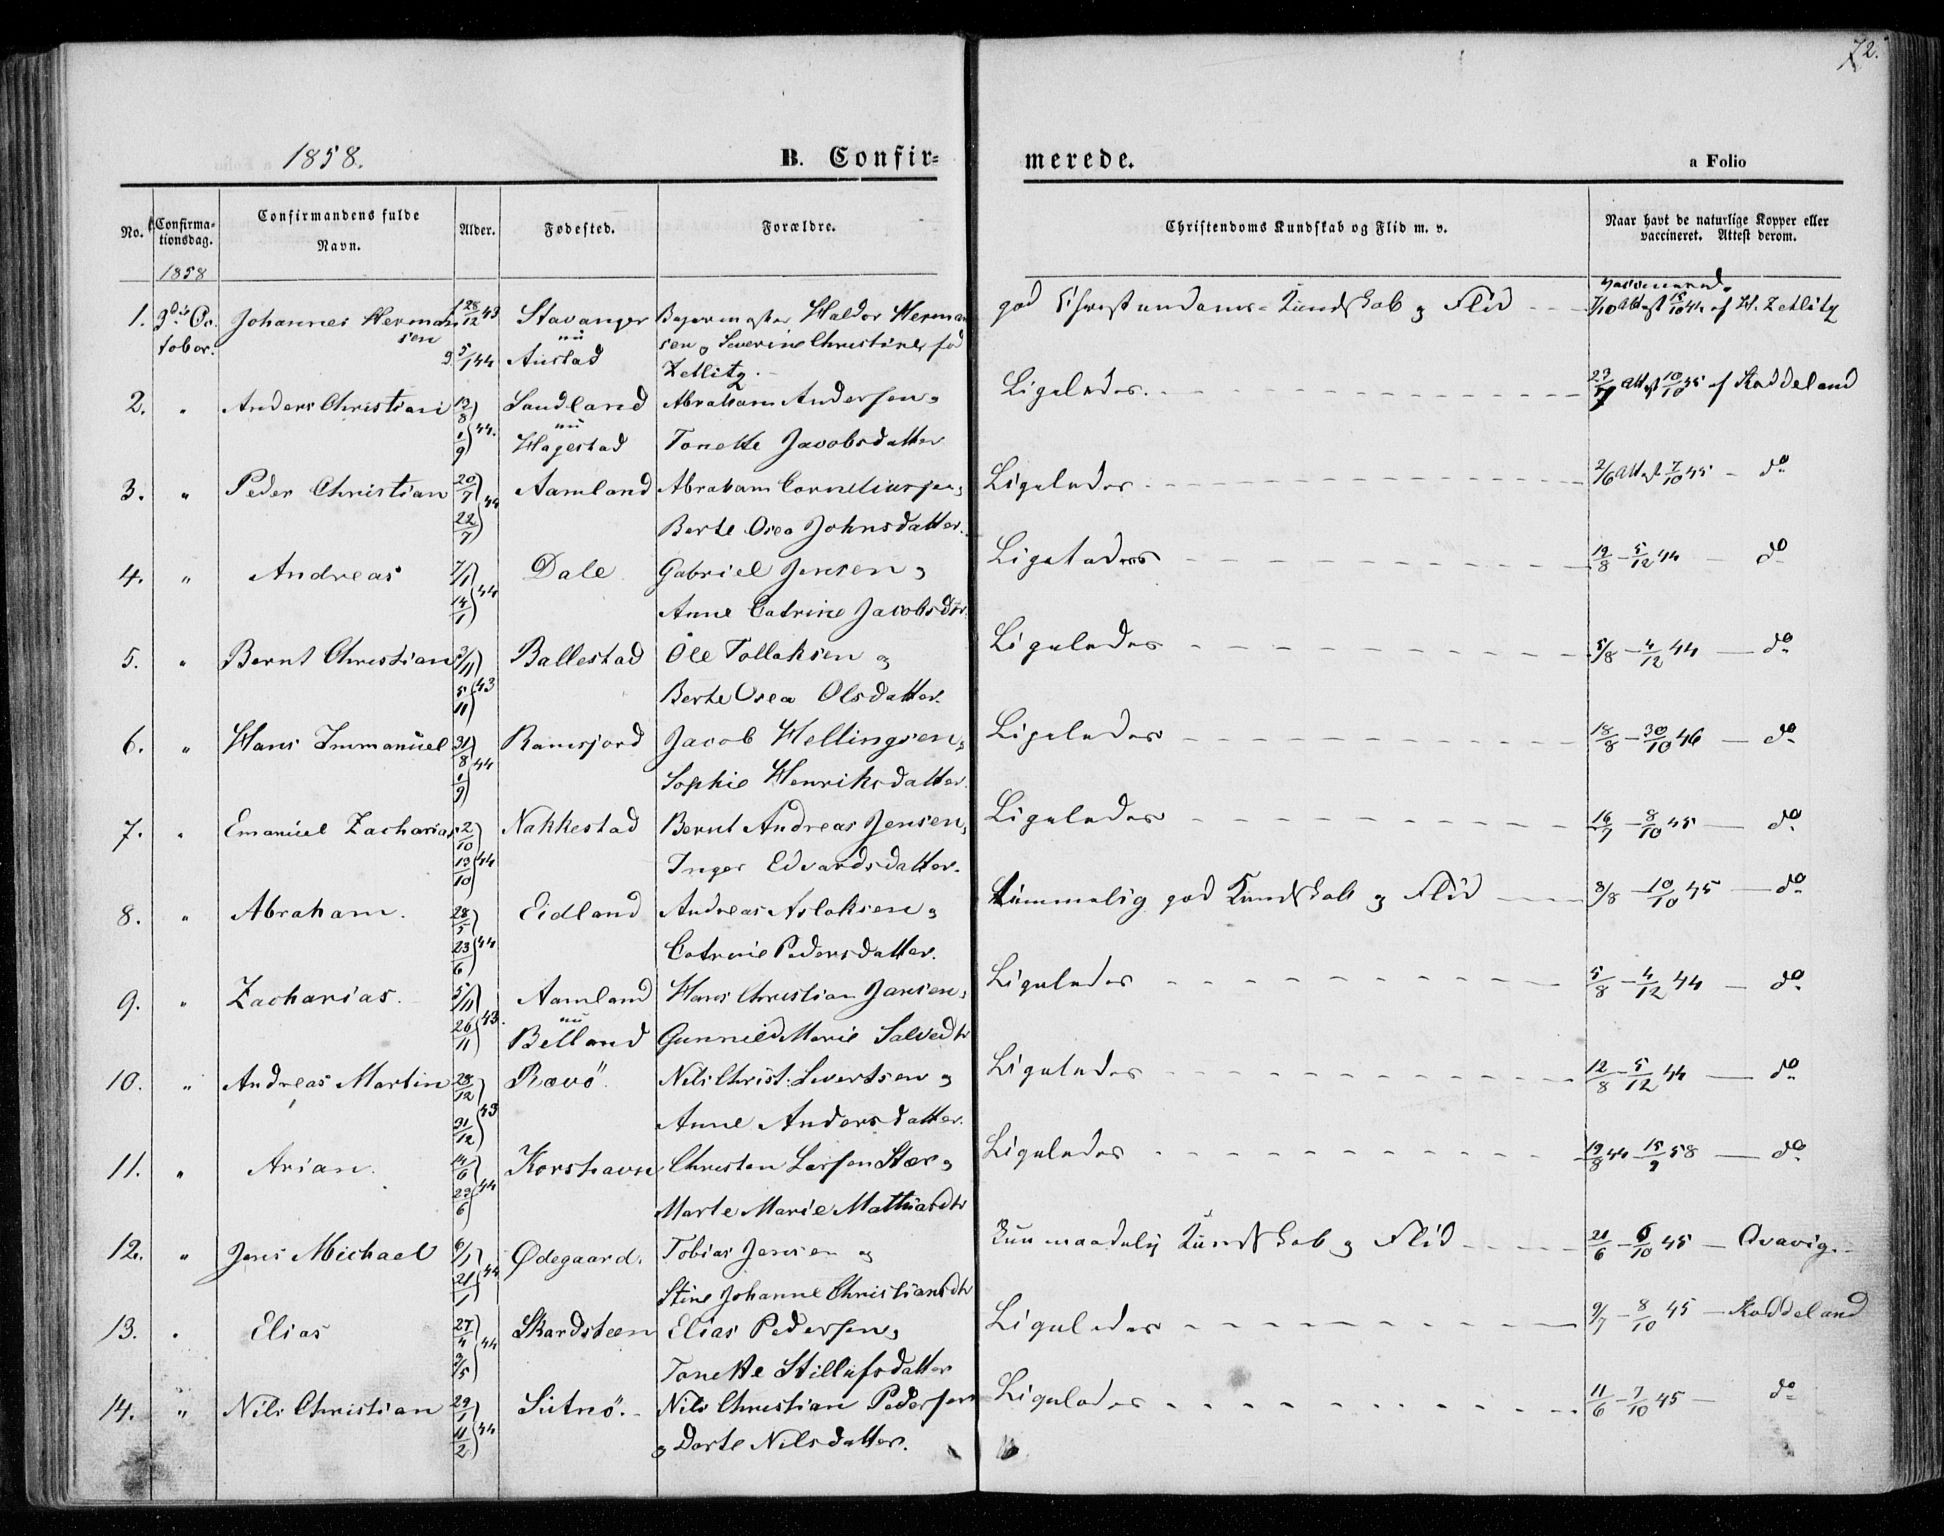 72.
1858. B. Confir- merede. a Folio
No. Confirma-tionsdag. Confirmandens fulde Navn. Alder. Fødested. Forældre. Christendoms Kundskab og Flid m. v. Naar havt de naturlige Kopper eller vaccineret. Attest derom.
1858
1. 3die Oc- Johannes Herman 28/12 43 Stavanger Haldor Herman god Christendoms-Kundskab og Flid 15/10 44 af H. Zetlitz
tober. sen 5/1 44 nu Austad sen og Severine Christine, fød
Zetlitz.
2. " Anders Christian 13/8 Sandland Abraham Andersen og Ligeledes. 23/7 Attest 10/10 45 af Kaddeland
1/9 44. nu Hagestad Tonette Jacobsdatter
3. " Peder Christian 20/7 Aamland Abraham Corneliussen og Ligeledes 2/6 Attest 7/10 45 - do
22/7 44 Berte Osea Johnsdatter.
4. " Andreas 7/1 Dale Gabriel Jensen og Ligeledes 12/8 - 5/12 44 - do
14/1 44 Anne Catrine Jacobsdtr.
5. " Bernt Christian 3/11 Ballestad Ole Tollaksen og Ligeledes 5/8 - 4/12 44 - do
5/11 43 Berte Osea Olsdatter.
6. " Hans Immanuel 31/8 Ramsfjord Jacob Hellingsen og Ligeledes 18/8 - 30/10 46 - do
1/9 44 Sophie Henriksdatter.
7. " Emanuel Zacharias 2/10 Nakkestad Bernt Andreas Jensen og Ligeledes 16/7 - 8/10 45 - do
13/10 44 Inger Edvardsdatter.
8. " Abraham. 28/5 Eidland Andreas Aslaksen og Temmelig god Kundskab og Flid 3/8 - 10/10 45 - do
23/6 44 Catrine Pedersdatter.
9. " Zacharias. 5/11 Aamland Hans Christian Jansen og Ligeledes 5/8 - 4/12 44 - do
26/11 43. nu Belland Gunnild Marie Salvedtr
10. " Andreas Martin 28/12 Rævø. Nils Christ. Sivertsen og Ligeledes 12/8 - 5/12 44 - do
31/12 43 Anne Andersdatter.
11. " Arian. 14/6 Korshavn Christen Larsen Stær og Ligeledes 19/8 44 - 15/9 58 - do
23/6 44 Marte Marie Mathiasdtr
12. " Jens Michael 6/1 Ødegaard. Tobias Jensen og Kun maadelig Kundskab og Flid 21/6 - 6/10 45 - Qvavig.
21/1 44 Stine Johanne Christiansdtr
13. " Elias 27/4 Skardsteen Elias Pedersen og Ligeledes 9/7 - 8/10 45 - Kaddeland
3/5 44 Tonette Stillufsdatter
14. " Nils Christian 29/1 Sütnö. Nils Christian Pedersen Ligeledes 11/6 - 7/10 45 - do
11/2 44 og Dorte Nilsdatter.